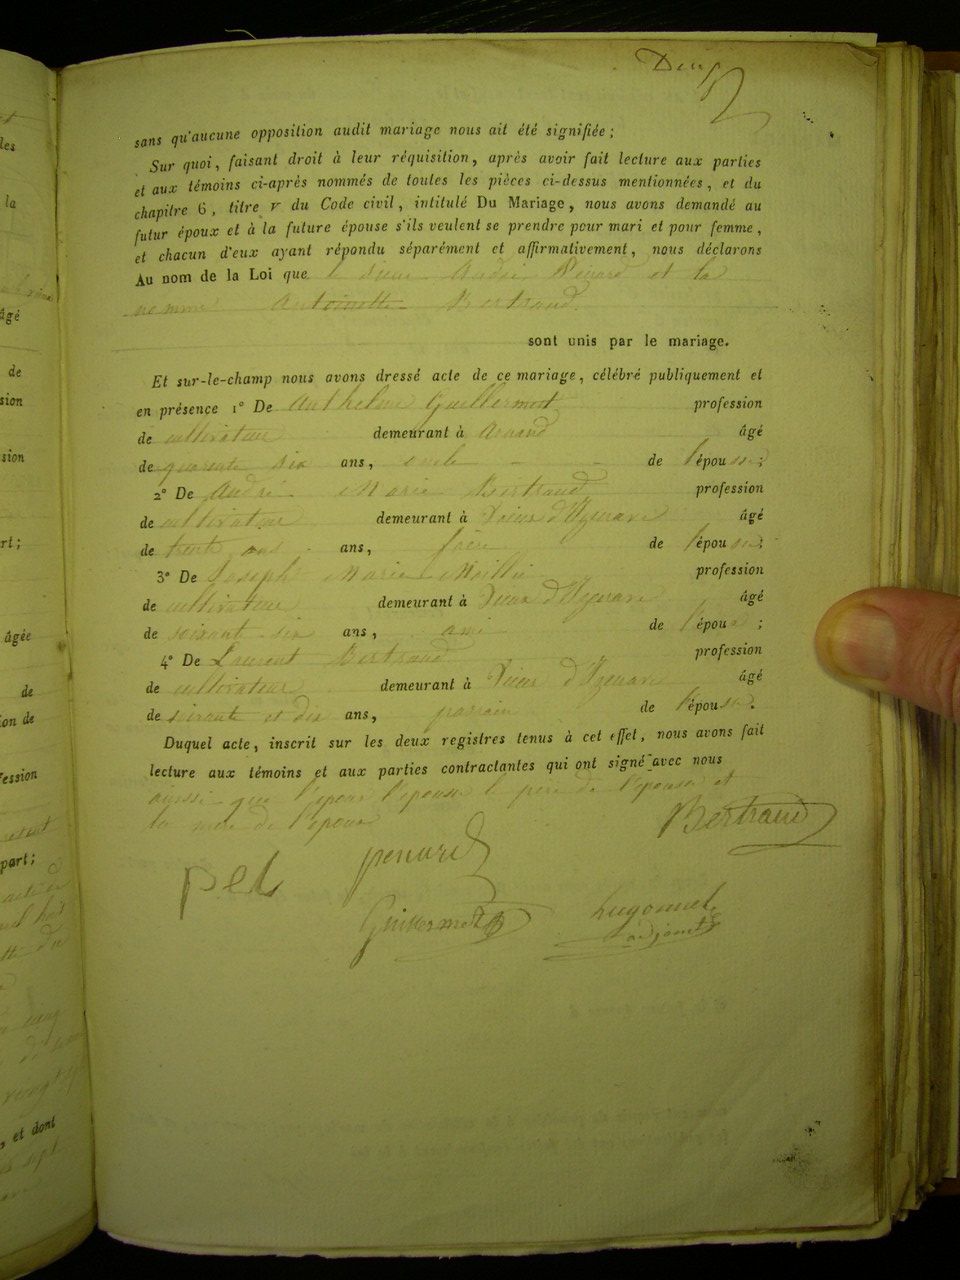 Deux
sans qu'aucune opposition audit mariage nous ait été signifiée ;
Sur quoi, faisant droit à leur réquisition, après avoir fait lecture aux parties
et aux témoins ci-après nommés de toutes les pièces ci-dessus mentionnées, et du
chapitre 6, titre v du Code civil, intitulé Du Mariage, nous avons demandé au
futur époux et à la future épouse s'ils veulent se prendre pour mari et pour femme,
et chacun d'eux ayant répondu séparément et affirmativement, nous déclarons
Au nom de la Loi que le sieur André Penard et la
nommé Antoinette Bertrand
sont unis par le mariage.
Et sur-le-champ nous avons dressé acte de ce mariage, célébré publiquement et
en présence 1° De Anthelme Guillermot profession
de cultivateur demeurant à Arnand âgé
de quarente six ans, oncle de l'épouse ;
2° De André Marie Bertrand profession
de cultivateur demeurant à Vieux d'Izenave âgé
de trente ans ans, frère de l'épouse ;
3° De Joseph Marie profession
de cultivateur demeurant à Vieux d'Izenave âgé
de soixant six ans, ami de l'époux ;
4° De Laurent Bertrand profession
de cultivateur demeurant à Vieux d'Izenave âgé
de soixante et dix ans, parrain de l'épouse.
Duquel acte, inscrit sur les deux registres tenus à cet effet, nous avons fait
lecture aux témoins et aux parties contractantes qui ont signé avec nous
ainsi que l'époux l'épouse le père de l'épouse et
la mère de l'époux
Bertrand
penard
Guillermot
hugonnet
adjoint
les
la
âgé
de
sion
sion
rt ;
âgée
de
ion de
fession
part ;
, et dont